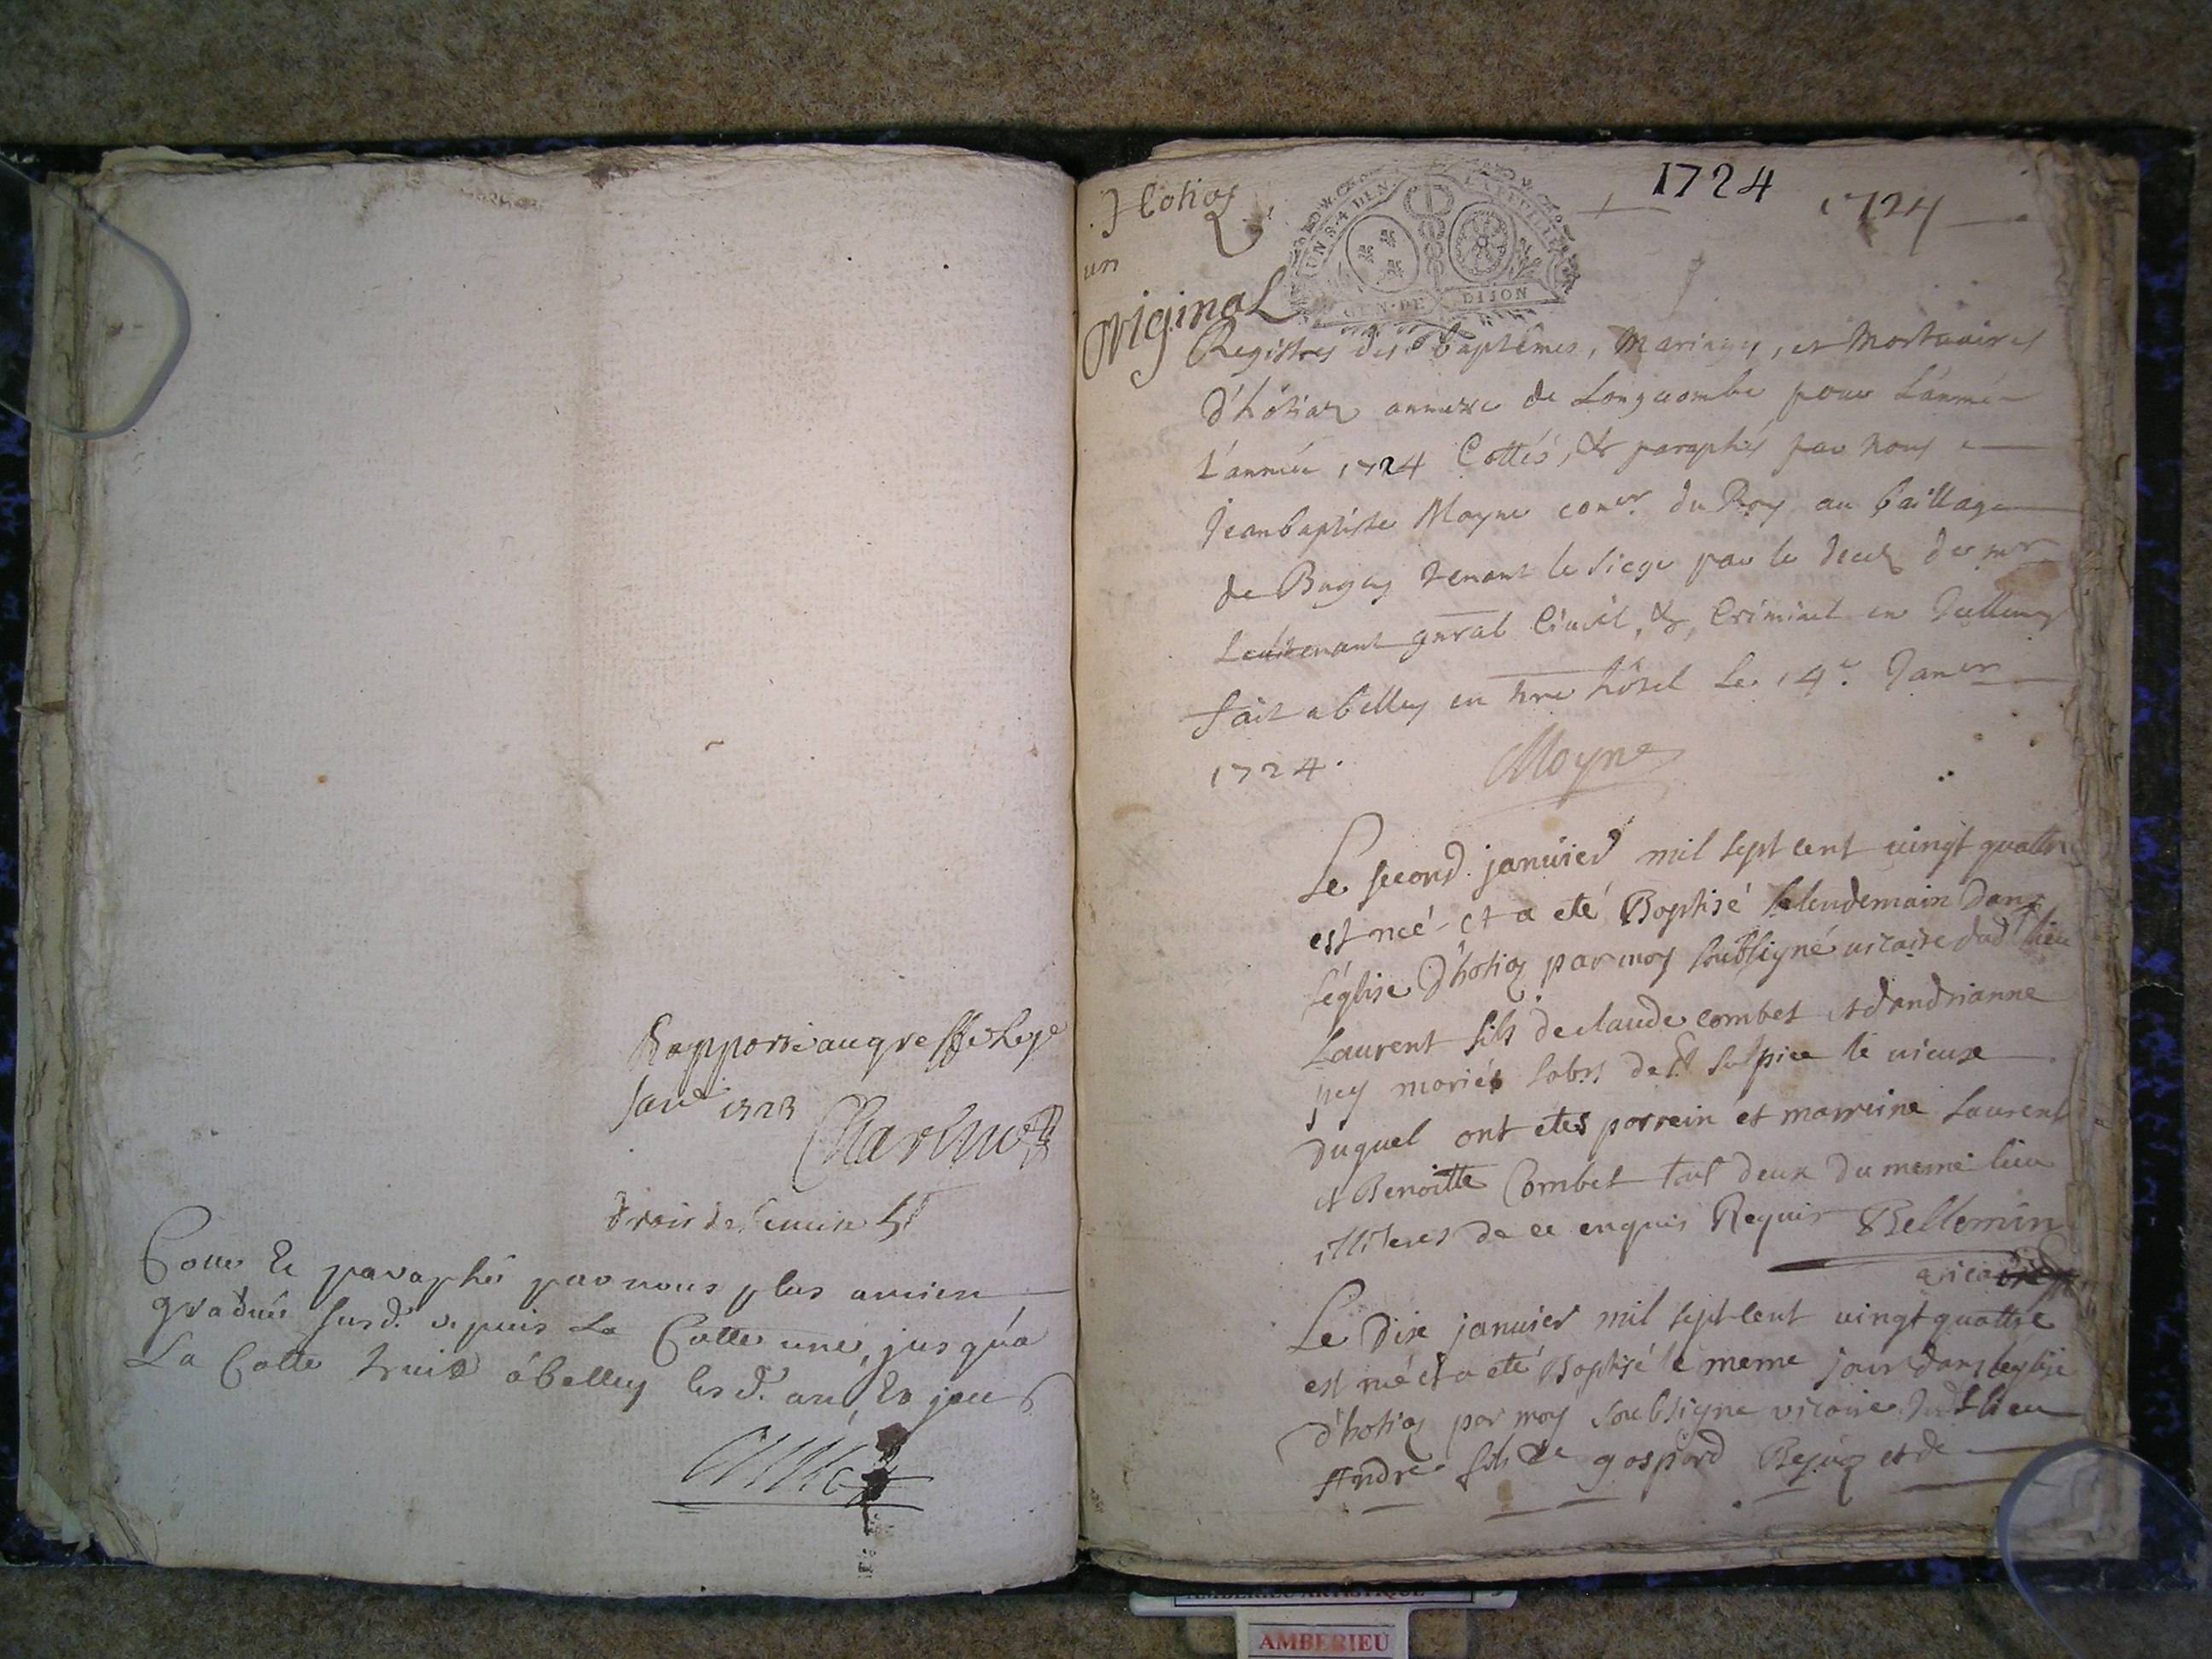 Rapporté au greffe le 9e
Janr 1723
Droit de
Cotté Et paraphé par nous plus ancien
gradué susd. depuis La Cotte une, jusqu'a
La Cotte huit à belley lesd. an, Et jour
Hotiaz
un
original
UN S. 4 DEN. LA FEUILLE
GEN. DE DIJON
1724
1724
Registres des baptêmes, Mariages, et Mortuaires
d'hôtiaz annexe de Longecombe pour L'année
L'année 1724 Cottés, & paraphés par nous
Jeanbaptiste Moyne coner. du Roy au bailliage
de Bugey tenant le siege par le deces de mr
Lieutenant gnral Civil, & Criminel en
fait a belley en nre hôtel Le 14e. Janer
1724.
Moyne
Le second janvier mil sept cent vingt quattre
est neé et a eté Baptisé le lendemain dans
l'église d'hotiaz par moy soubsigné vicaire dudt lieu
Laurent fils de claude combet et dandrianne
pey mariés labrs de St sulpice le vieux
duquel ont etes parrein et marreine Laurent
et Benoitte Combet tous deux du meme lieu
illiteres de ce enquis Requis Bellemin
vicaire
Le dix janvier mil sept cent vingt quattre
est né et a eté Baptisé le meme jour dans leglise
d'hotiaz par moy soubsigne vicaire dudt lieu
Andre fils de gaspard Bejuy et de
AMBERIEU ARTISTIQUE
AMBERIEU